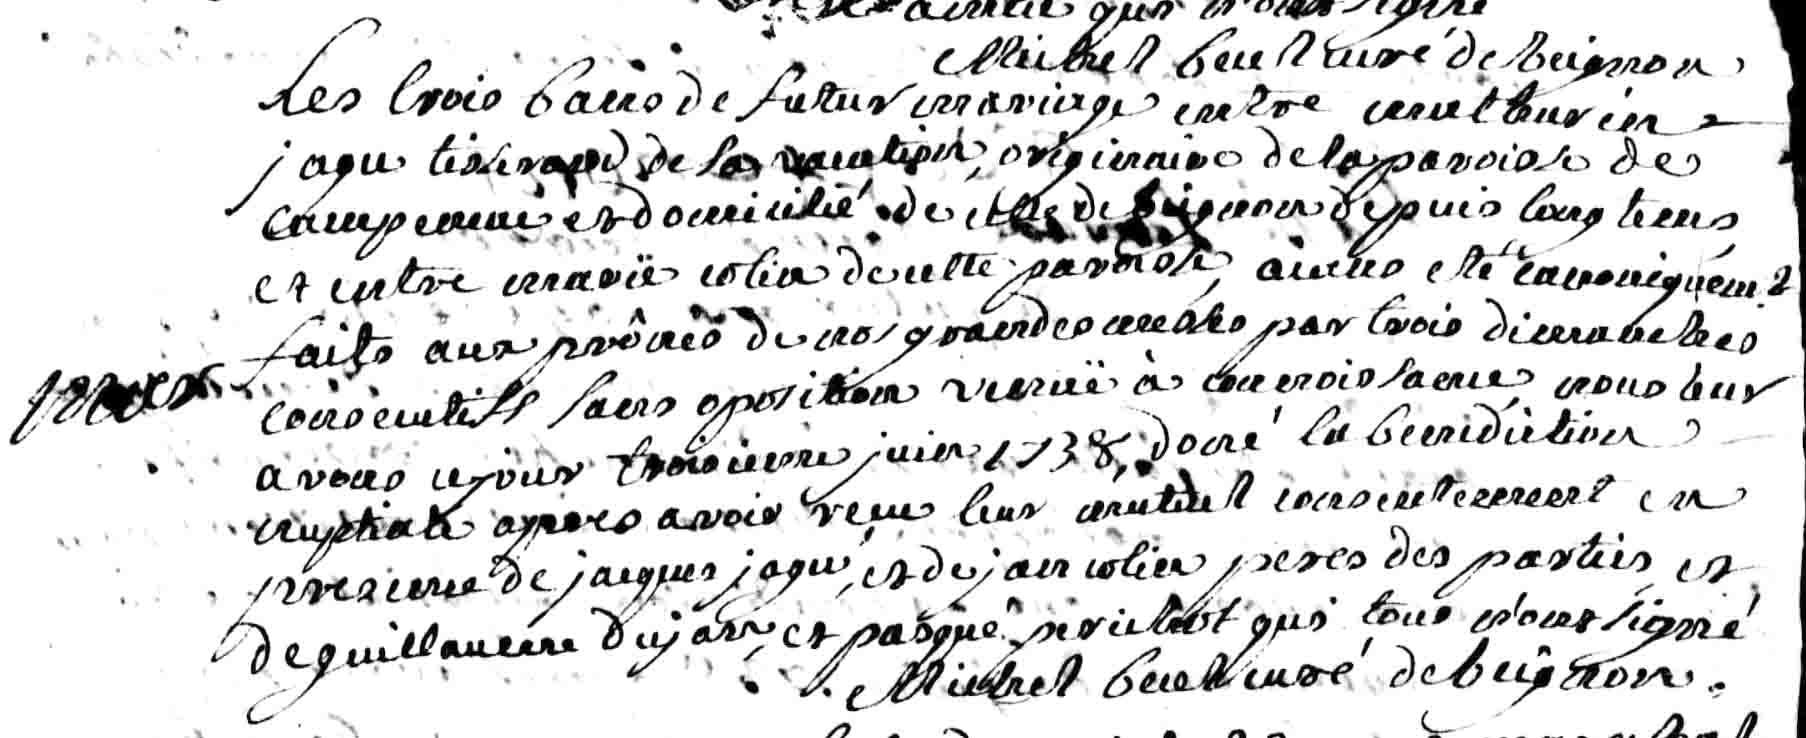 qui n'ont signé
Michel beul curé de beignon
Les trois bans de futur mariage entre mathurin
jagu tisserand de sa vacation, originaire de la paroisse de
campeneac et domicilié de celle de beignon depuis long tems
et entre marië colin de cette paroisse, aiens eté canoniquemt
faits aux prônes de nos grandes messes par trois dimanches
consecutifs sans oposition venuë à connoissance, nous leur
avons ce jour troisieme juin 1738, doné la benediction
nuptiale apres avoir receu leur mutuel consentement en
presence de jacques jagu, et de jan colin peres des parties et
de guillaume dujan, et pasque qui tous n'ont signé
Michel beul curé de beignon.